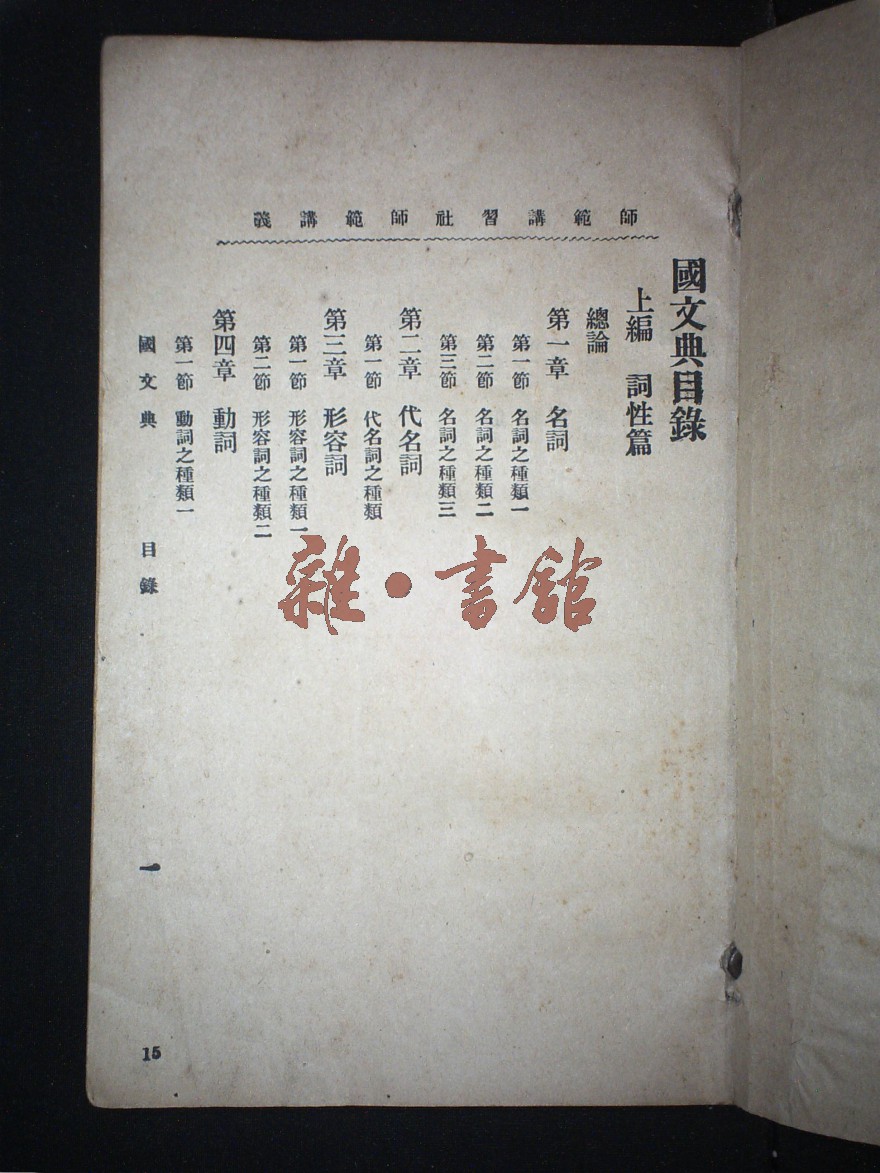 師範講習社師範講義
國文典目錄
上編　詞性篇
總論
第一章　名詞
第一節　名詞之種類一
第二節　名詞之種類二
第三節　名詞之種類三
第二章　代名詞
第一節　代名詞之種類
第三章　形容詞
第一節　形容詞之種類一
第二節　形容詞之種類二
第四章　動詞
第一節　動詞之種類一
國文典　目錄　一
15
雜·書館